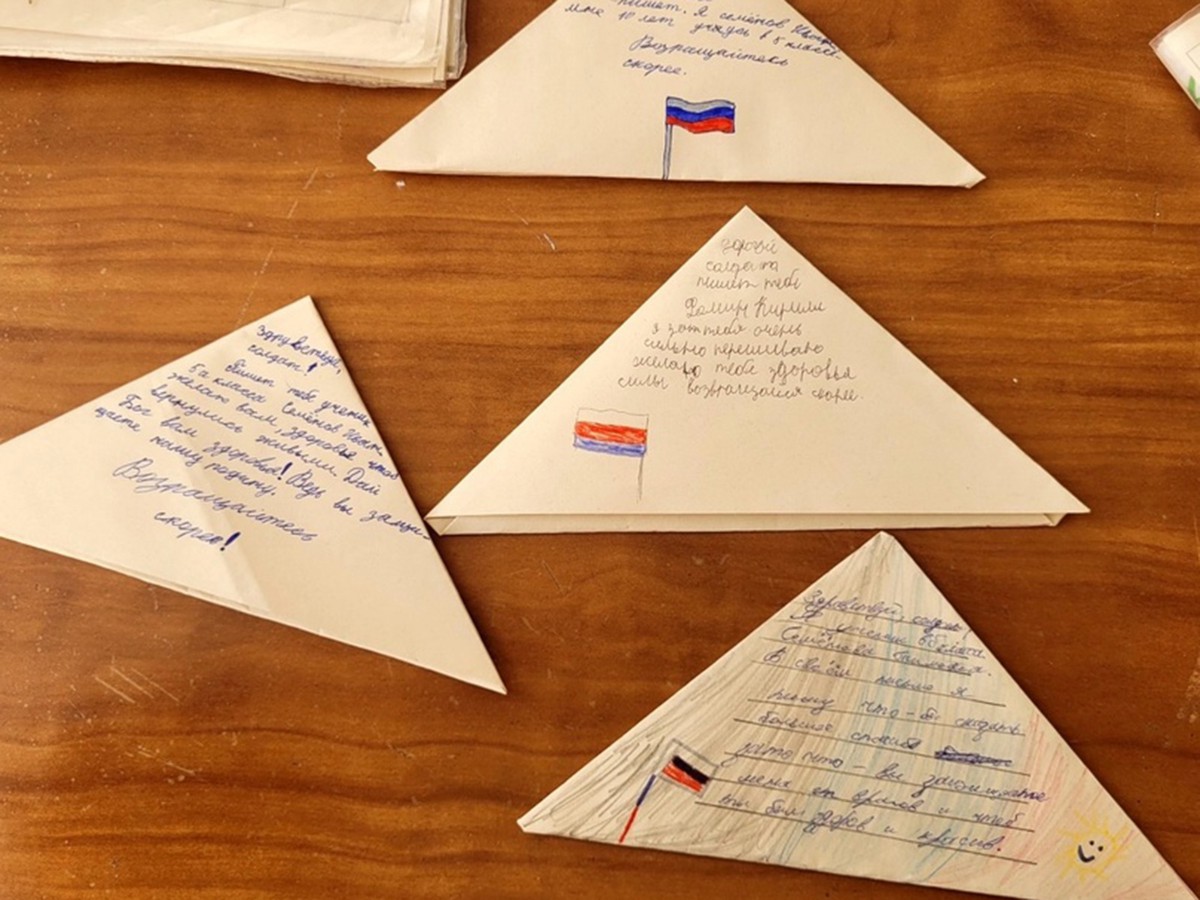 пишет. Я семёнов Иван
мне 10 лет учусь в 5 классе.
Возращайтесь
скорее.
здоровй
солдата
пишет тебе
Фомин Кирилл
я зоттебя очень
сильно переживаю
желаю тебе здоровья
силы возвращайся скорее.
Здруветвуй,
солдат!
Пишет тебе ученик
5а класса Семёнов Иван
желаю вам, здоровье, чтоб
вернулись живыми. Дай
Бог вам здоровья! Ведь вы защи-
щаете нашу родину.
Возращайтесь
скорее!
Здравствуй, солдат!
класса
Семёнова
В своём письме я
пишу что-бы сказать
большое спасибо
зато что-вы защищаете
меня от врагов и чтоб
ты был здоров и красив.